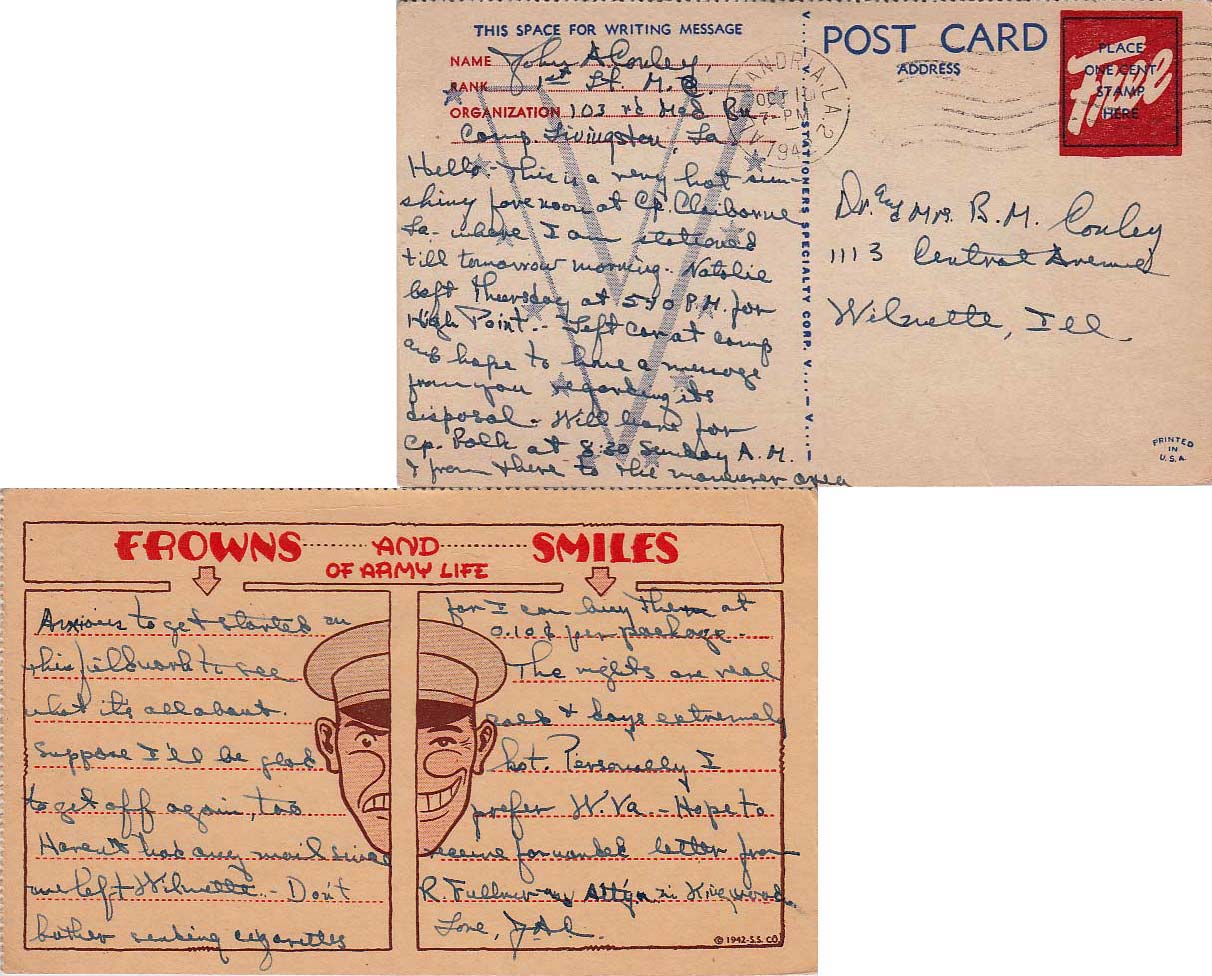 THIS SPACE FOR WRITING MESSAGE
NAME John A Conley,
RANK 1st Lt. M.C.
ORGANIZATION 103 rd Med Bn
Camp Livingston, La
Hello - This is a very hot sun-
shiny forenoon at Cp. Claiborne
La - where I am stationed
till tomorrow morning. Natalie
left Thursday at 5:10 P.M. for
High Point. - Left car at camp
and hope to have a message
from you regarding its
disposal - Will leave for
Cp. Polk at 8:30 Sunday A.M.
& from there to the maneuver area
V....-V-STATIONERS SPECIALTY CORP. V....-V....-
POST CARD
ADDRESS
PLACE
ONE CENT
STAMP
HERE
Free
ALEXANDRIA, LA. 2
OCT 10
7-PM
194
Dr. and Mrs. B.M. Conley
1113 Central Avenue
Wilmette, Ill.
PRINTED
IN
U.S.A.
FROWNS AND SMILES
OF ARMY LIFE
Anxious to get started on
this field work to see
what it's all about.
Suppose I'll be glad
to get off again, too
Haven't had any mail since
we left Wilmette - Don't
bother sending cigarettes
for I can buy them at
0.10¢ per package -
The nights are real
cold & days extremely
hot. Personally I
prefer W. Va. - Hope to
receive forwarded letter from
R. Fullmer my Att'y in Kingwood.
Love, J.A.C.
© 1942-S.S. CO.